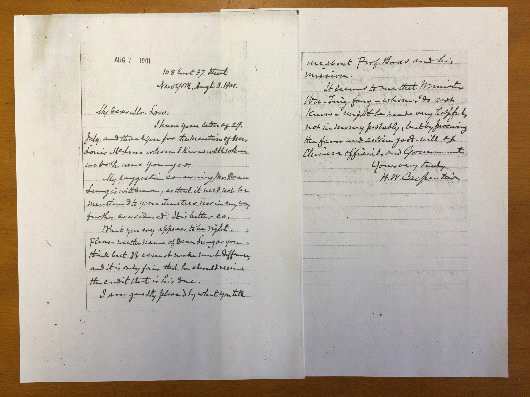 AUG 7 1901
108 East 37 Street
New York, Augt 3. 1901.
My dear Mr. Low.
I have your letter of 29
July, and thank you for the mention of Mr.
Louis whom I knew when
we both were younger.
My suggestion concerning Mr. Dean
Lung is withdrawn, so that it need not be
mentioned to your Trustees nor in any way
further considered. It is better so.
What you say appears to be right.
Please use the name of Dean Lung as you
think best. It does not make much difference
and it is only fair that he should receive
the credit that is his due.
I am greatly pleased by what you tell
me about Prof Boas and his
mission.
It seems to me that Minister
Wu Ting fang whom I do not
know might be made very helpful
not in money probably, but by securing
the favor and active good will of
Chinese officials and Government.
Yours very truly
H. W. Carpentier